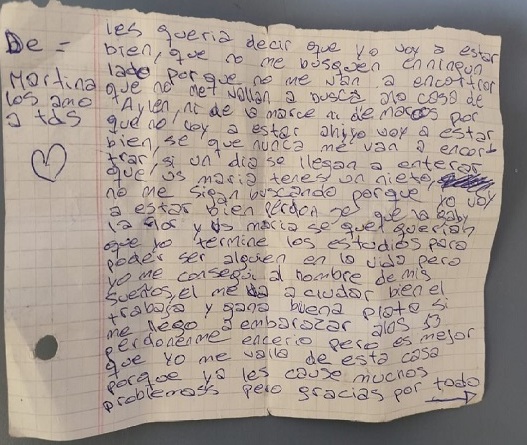 De =
Martina
los amo
a tds
les queria decir que yo voy a estar
bien, que no me busquen enningun
lado porque no me van a encontrar
que no me vallan a busca ala casa de
Aylen, ni de la marce ni de marcos por
que no voy a estar ahi yo voy a estar
bien, se que nunca me van a encont
trar, si un dia se llegan a enterar
que vs maria tenes un nieto,
no me sigan buscando porque yo voy
a estar bien perdon se que la baby
la flor y vs maria se que querian
que yo termine los estudios para
poder ser alguien en la vida pero
yo me consegui al hombre de mis
sueños, el me va a cuidar bien el
trabaja y gana buena plata si
me llego a embarazar alos
perdonenme encerio pero es mejor
que yo me valla de esta casa
porque ya les cause muchos
problemass pero gracias por todo